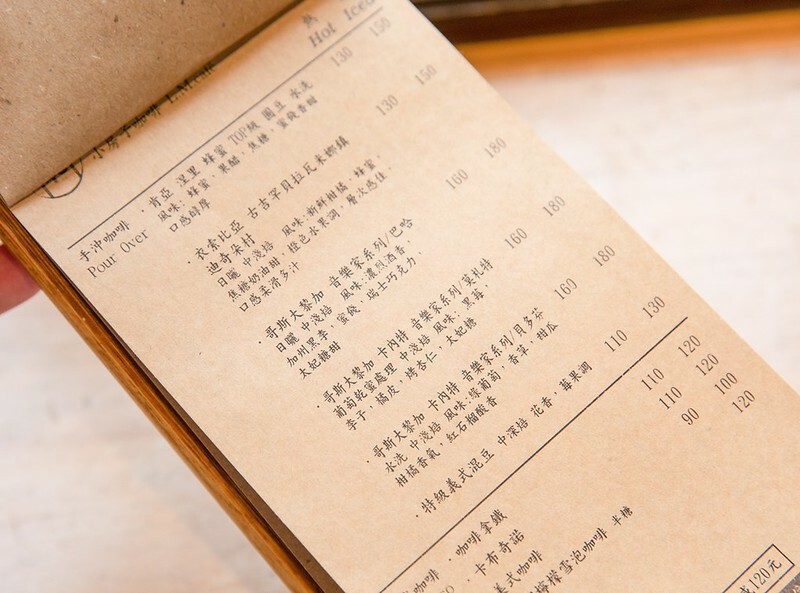 小房子咖啡 LM cafe
熱
Hot Iced
手沖咖啡
Pour Over
・肯亞 涅里 蜂蜜 TOP級 圓豆 水洗 130 150
風味: 蜂蜜、果醋、焦糖、蜜餞香甜
口感醇厚
・衣索比亞 古吉罕貝拉瓦米娜鎮 130 150
迪奇朵村
日曬 中淺焙 風味:新鮮柑橘、蜂蜜、
焦糖奶油甜、橙色水果調、層次感佳、
口感柔滑多汁
・哥斯大黎加 音樂家系列/巴哈 160 180
日曬 中淺焙 風味:濃烈酒香、
加州黑李、蜜餞、瑞士巧克力、
太妃糖甜
・哥斯大黎加 卡內特 音樂家系列/莫札特 160 180
葡萄乾蜜處理 中淺焙 風味: 黑莓、
李子、橘皮、烤杏仁、太妃糖
・哥斯大黎加 卡內特 音樂家系列/貝多芬 160 180
水洗 中淺焙 風味:綠葡萄、香草、甜瓜
柑橘香氣、紅石榴酸香
・特級義式混豆 中深焙 花香、莓果調 110 130
咖啡
・咖啡拿鐵 110 120
・卡布奇諾 110 120
美式咖啡 90 100
檸檬雪泡咖啡 半糖 120
120元